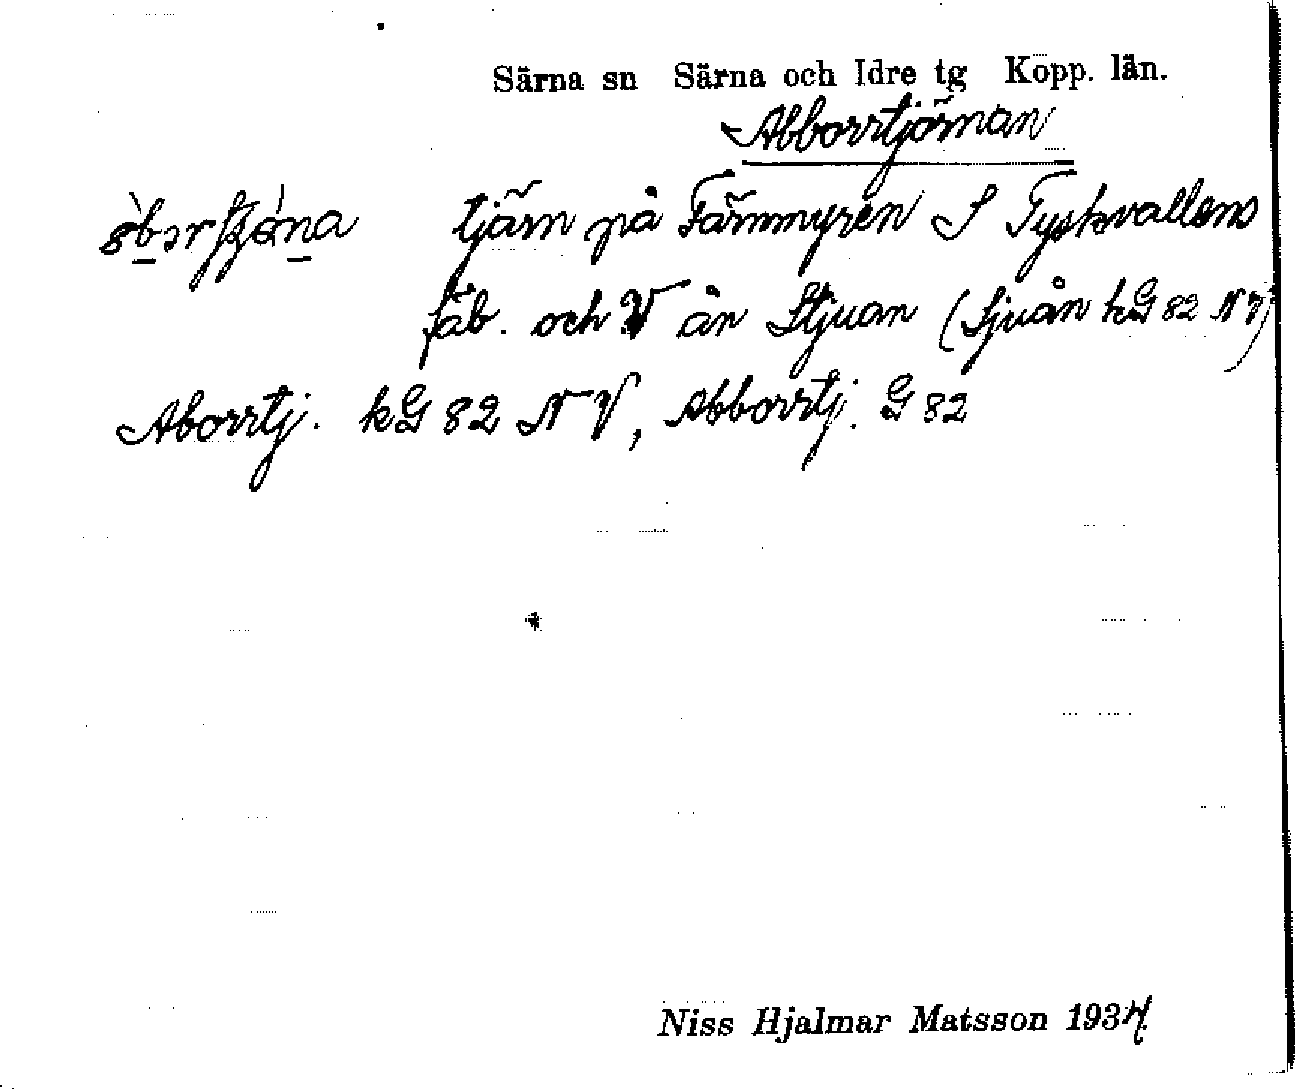 Särna sn Särna och Idre tg Kopp. län.
Abborrtjärnan
tjärn på Fämmyren S Tyskvallens
fäb. och V ån Stjuan (Sjuån kG 82 NV)
Aborrtj. kG 82 NV, Abborrtj. G 82
Niss Hjalmar Matsson 1934